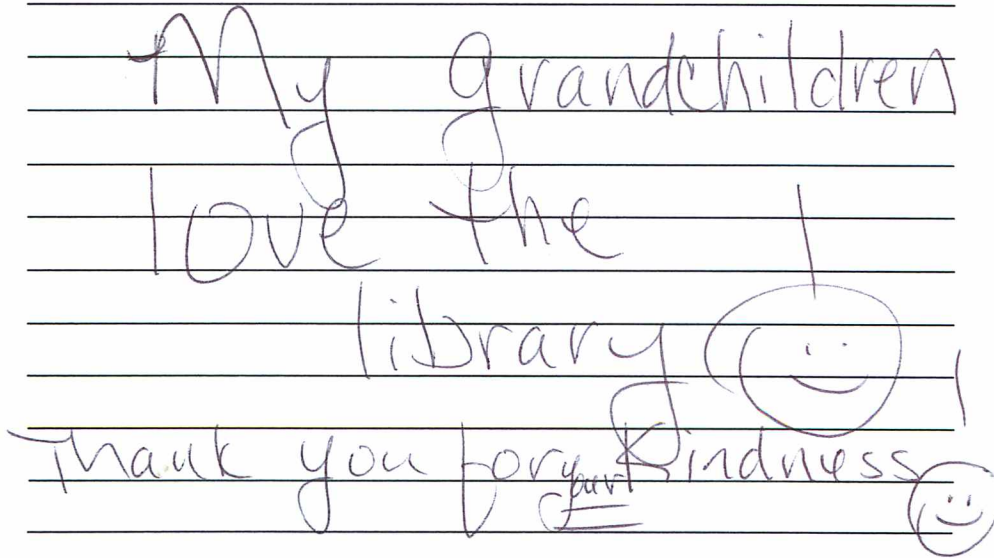 My grandchildren
love the
library!
Thank you for your Kindness!